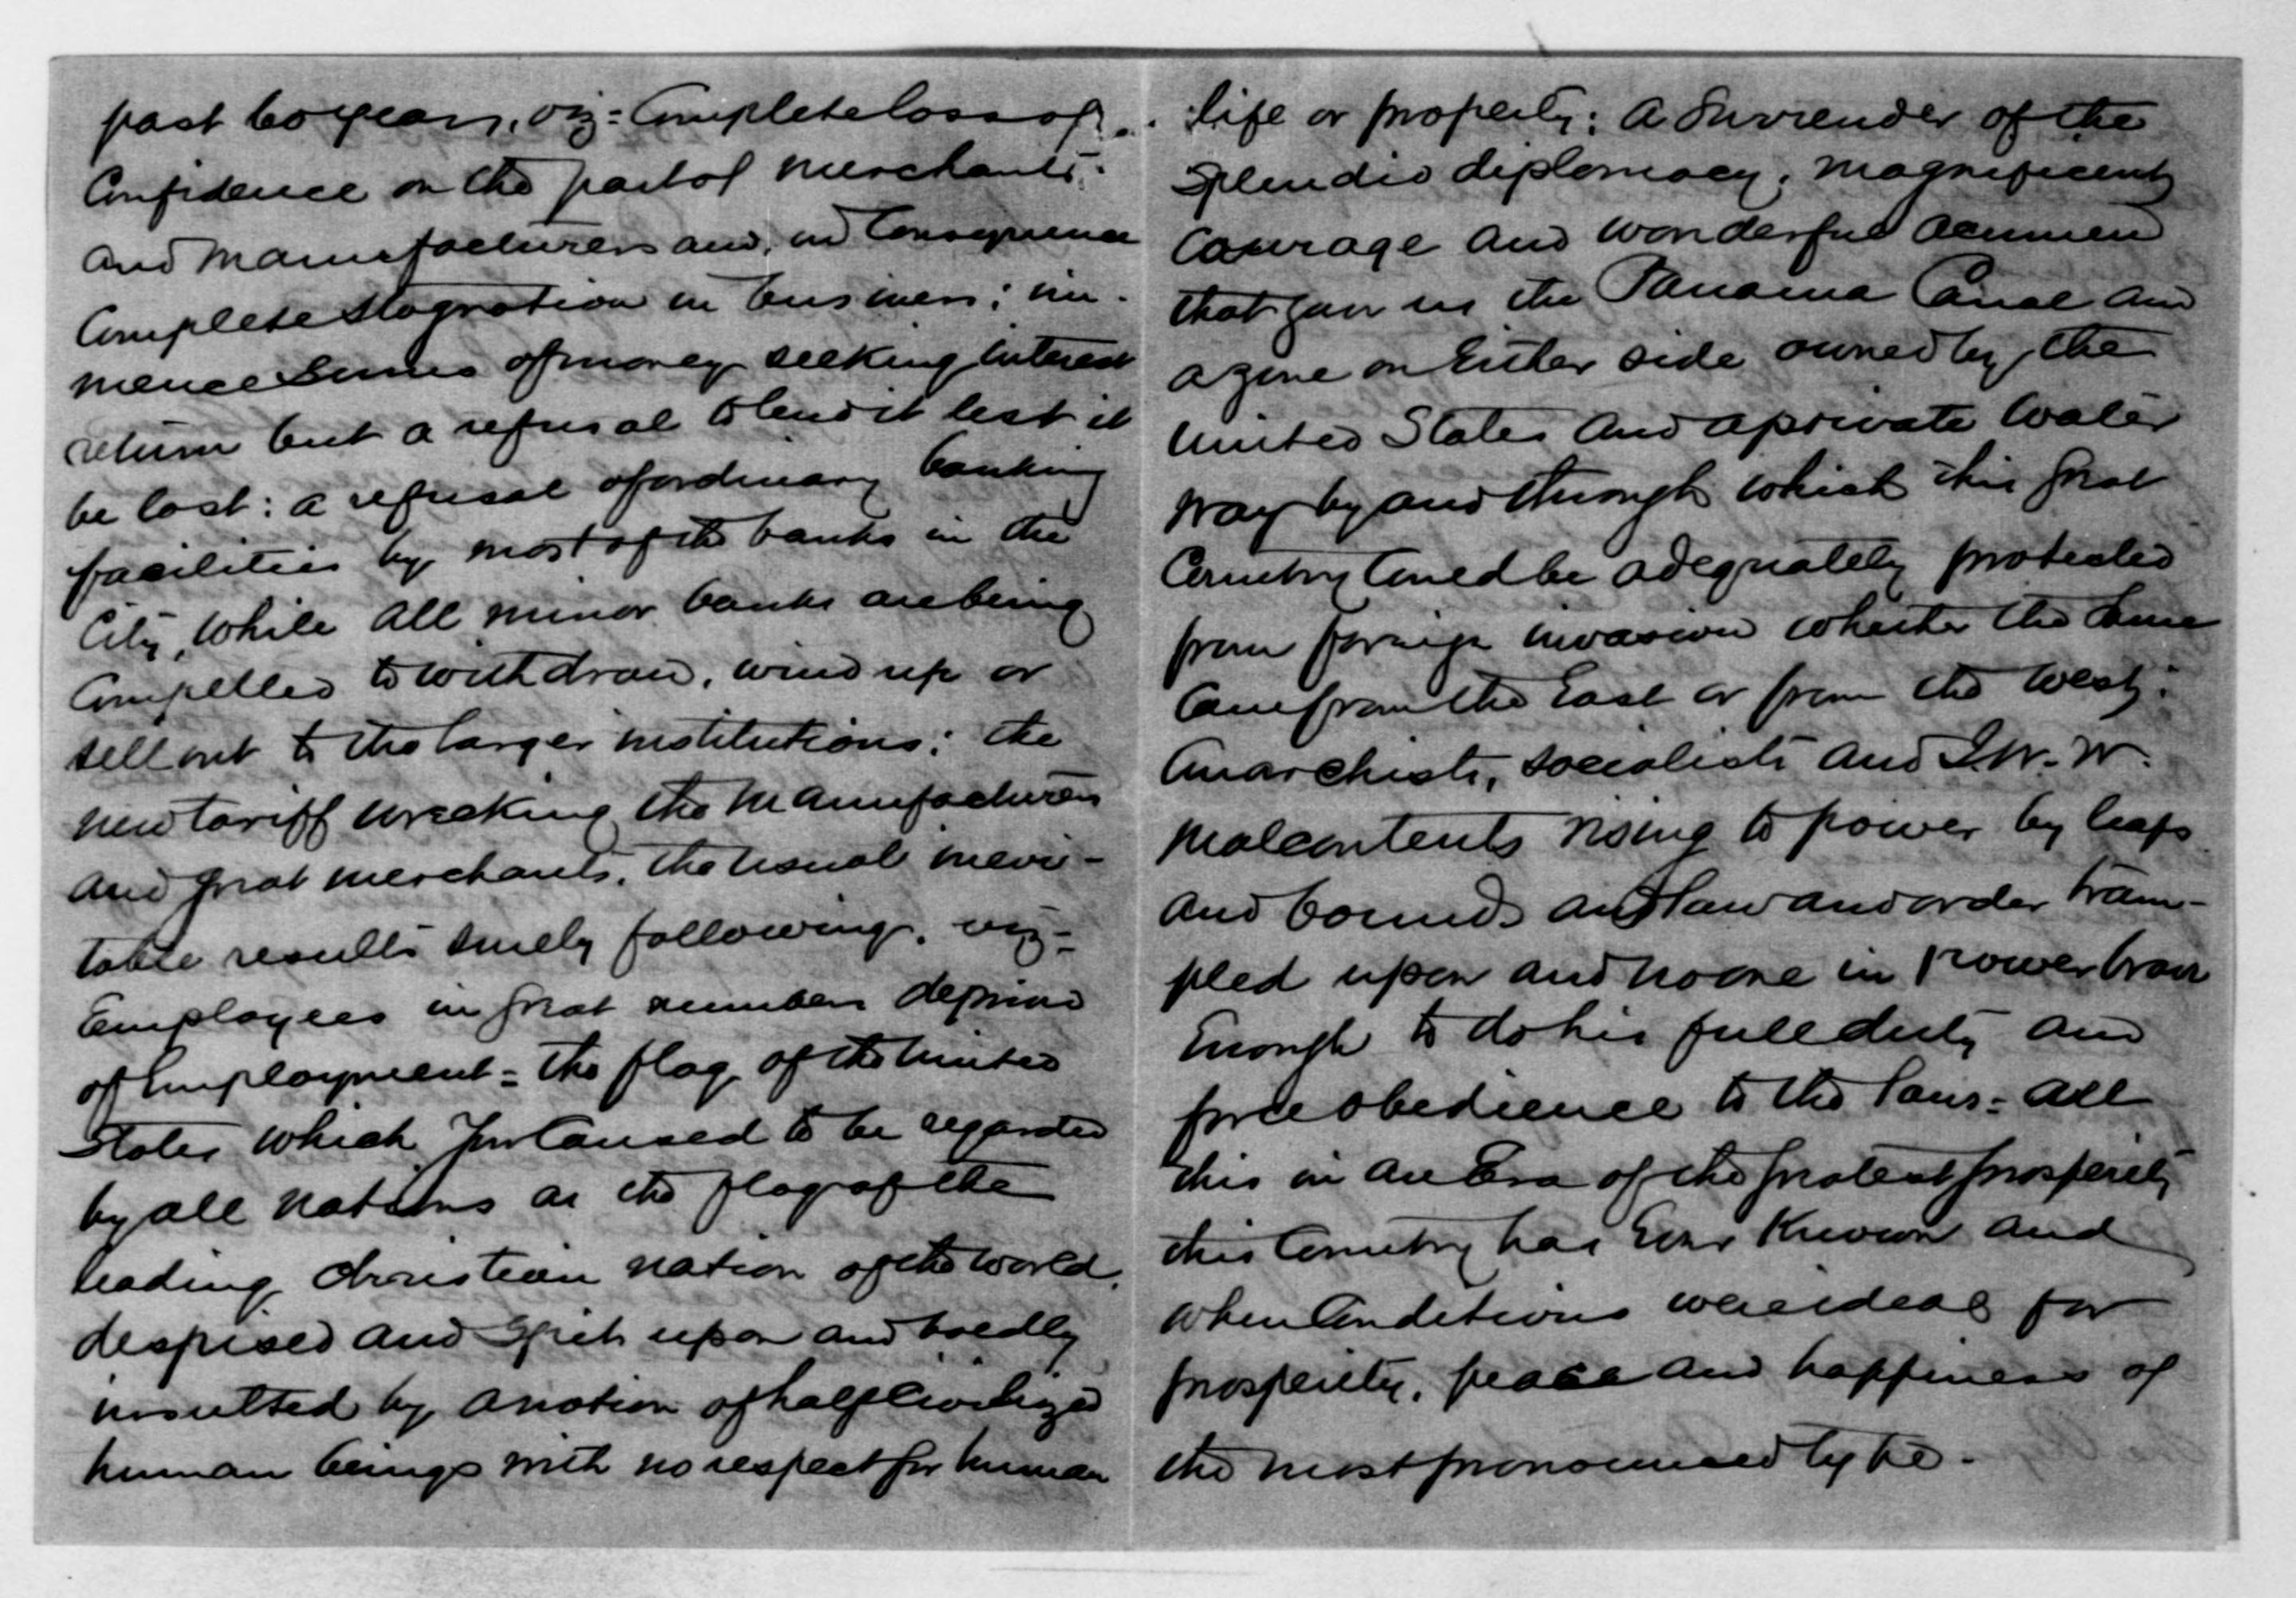 past 60 years, viz = Complete loss of
Confidence on the part of merchants
and Manufacturers and, in Consequence
Complete stagnation in business; im-
mence sums of money seeking interest
return but a refusal to lend it lest it
be lost: a refusal of ordinary banking
facilities by most of the banks in the
City, while all minor banks are being
Compelled to withdraw, wind up or
sell out to the larger institutions; the
new tariff wrecking the Manufacturers
and great merchants, the usual inevi-
table results surely following, viz =
Employees in great numbers deprived
of Employment = the flag of the United
States which you Caused to be regarded
by all nations as the flag of the
leading Christian nation of the world,
despised and spit upon and boldly
insulted by a nation of half Civilized
human beings with no respect for human
life or property: A surrender of the
splendid diplomacy, magnificent
Courage and wonderful acumen
that gave us the Panama Canal and
a zone on Either side owned by the
United States and a private water
way by and through which this great
Country Could be adequately protected
from foreign invasion whether the same
Came from the East or from the West:
Anarchists, socialists and I.W.W.
malcontents rising to power by leaps
and bounds and law and order tram-
pled upon and no one in power brave
Enough to do his full duty and
force obedience to the laws = All
this in an Era of the greatest prosperity
this Country has Ever Known and
when Conditions were ideal for
prosperity, peace and happiness of
the most pronounced type.